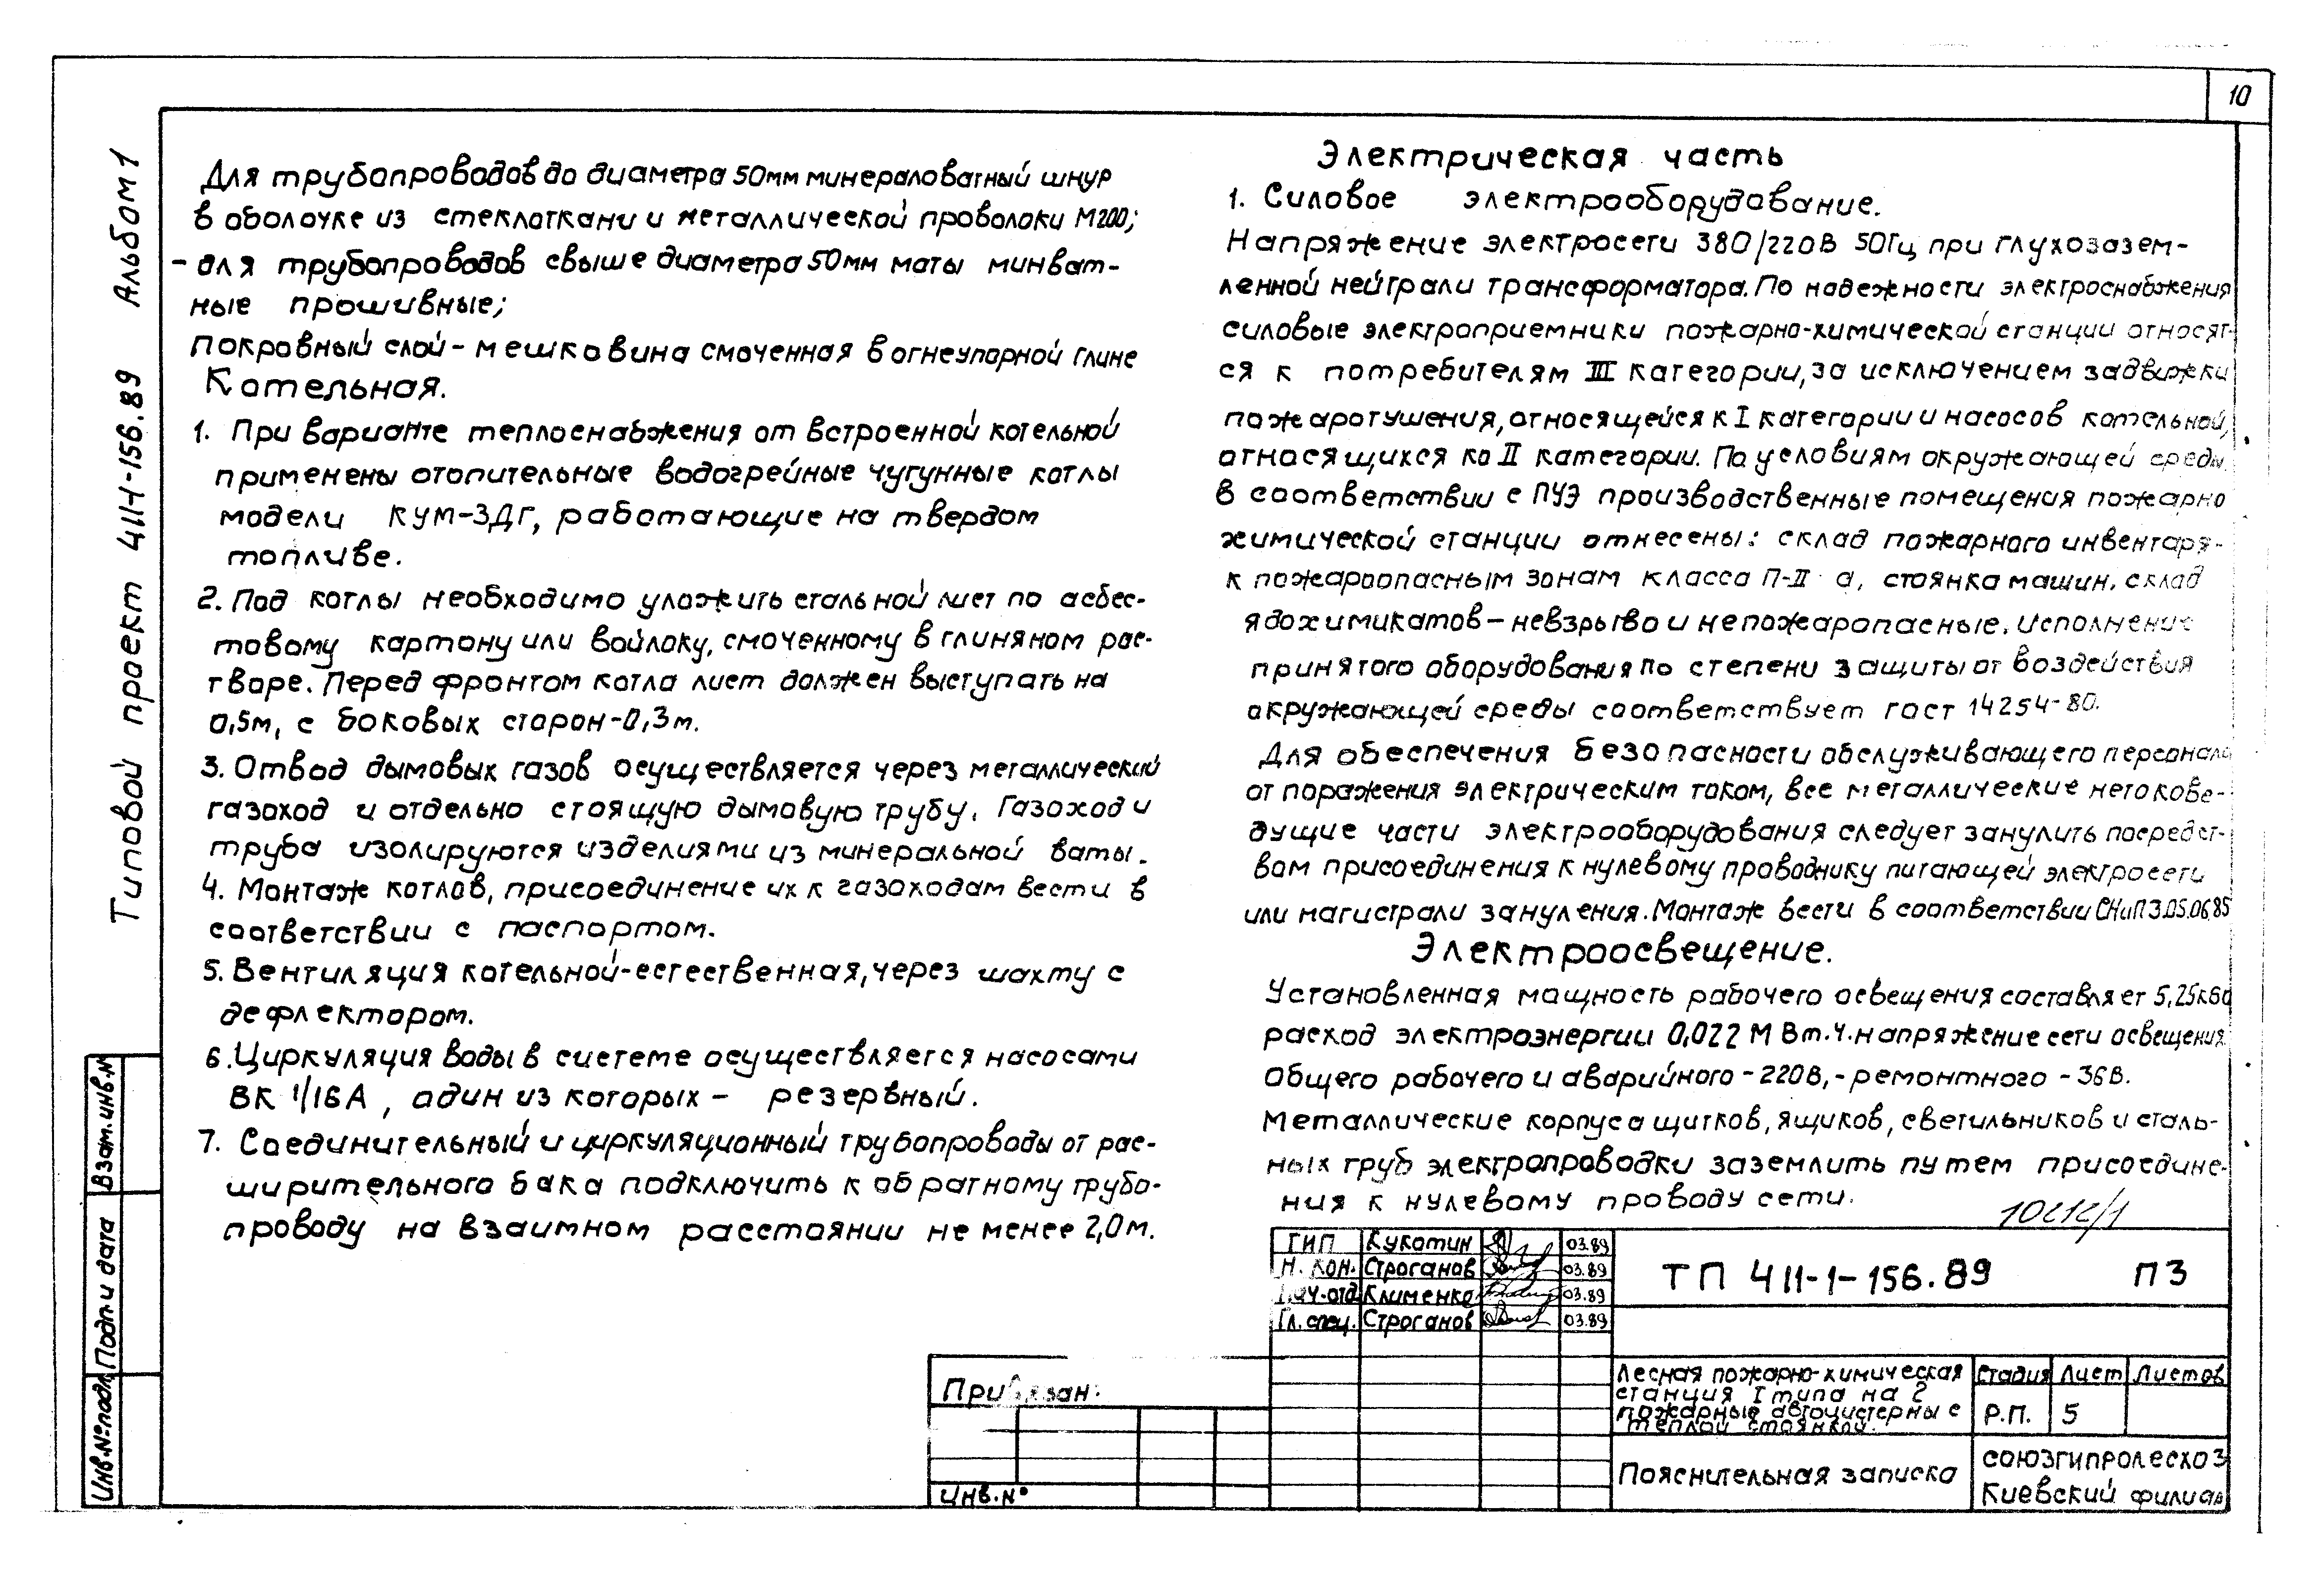 10
Типовой проект 411-1-156.89 Альбом 1
Для трубопроводов до диаметра 50мм минераловатный шнур
в оболочке из стеклоткани и металлической проволоки М200;
- для трубопроводов свыше диаметра 50мм маты минват-
ные прошивные;
покровный слой - мешковина смоченная в огнеупорной глине
Котельная.
1. При варианте теплоснабжения от встроенной котельной
применены отопительные водогрейные чугунные котлы
модели КУМ-3ДГ, работающие на твердом
топливе.
2. Под котлы необходимо уложить стальной лист по асбес-
товому картону или войлоку, смоченному в глиняном рас-
творе. Перед фронтом котла лист должен выступать на
0,5м, с боковых сторон-0,3м.
3. Отвод дымовых газов осуществляется через металлический
газоход и отдельно стоящую дымовую трубу. Газоход и
труба изолируются изделиями из минеральной ваты.
4. Монтаж котлов, присоединение их к газоходам вести в
соответствии с паспортом.
5. Вентиляция котельной-естественная, через шахту с
дефлектором.
6. Циркуляция воды в системе осуществляется насосами
ВК 1/16А, один из которых - резервный.
7. Соединительный и циркуляционный трубопроводы от рас-
ширительного бака подключить к обратному трубо-
проводу на взаимном расстоянии не менее 2,0м.
Электрическая часть
1. Силовое электрооборудование.
Напряжение электросети 380/220В 50Гц при глухозазем-
ленной нейтрали трансформатора. По надежности электроснабжения
силовые электроприемники пожарно-химической станции относят-
ся к потребителям III категории, за исключением задвижки
пожаротушения, относящейся к I категории и насосов котельной,
относящихся ко II категории. По условиям окружающей среды
в соответствии с ПУЭ производственные помещения пожарно
химической станции отнесены: склад пожарного инвентаря-
к пожароопасным зонам класса П-II а, стоянка машин, склад
ядохимикатов - невзрыво и непожароопасные. Исполнение
принятого оборудования по степени защиты от воздействия
окружающей среды соответствует гост 14254-80.
Для обеспечения безопасности обслуживающего персонала
от поражения электрическим током, все металлические нетокове-
дущие части электрооборудования следует занулить посредст-
вом присоединения к нулевому проводнику питающей электросети
или магистрали зануления. Монтаж вести в соответствии СНиП 3.05.06.85
Электроосвещение.
Установленная мощность рабочего освещения составляет 5,25кВа
расход электроэнергии 0,022 М Вт.ч. напряжение сети освещения
общего рабочего и аварийного - 220В, - ремонтного - 36В.
Металлические корпуса щитков, ящиков, светильников и сталь-
ных труб электропроводки заземлить путем присоедине-
ния к нулевому проводу сети.
ГИП Кукотин 03.89
Н. кон. Строганов 03.89
Нач.отд Клименко 03.89
Гл. спец. Строганов 03.89
ТП 411-1-156.89 ПЗ
Привязан:
Инв.№
Лесная пожарно-химическая
станция I типа на 2
пожарные автоцистерны с
теплой стоянкой.
Стадия Лист Листов
Р.П. 5
Пояснительная записка
союзгипролесхоз
Киевский филиал
Взам.инв.№
Подп. и дата
Инв.№ подл